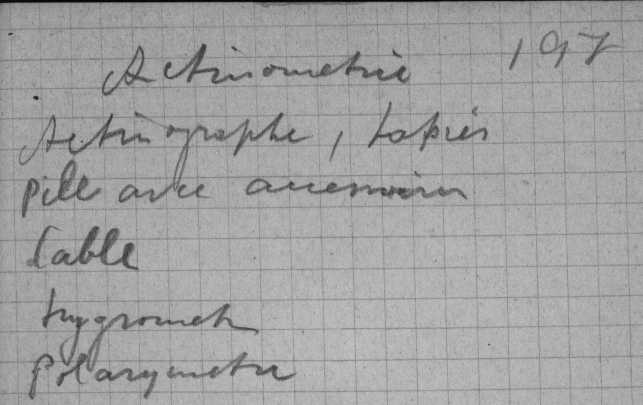 Actinometrie 197
Actinographe, papier
pile avec accessoires
Cable
hygrometr
Polarymetre